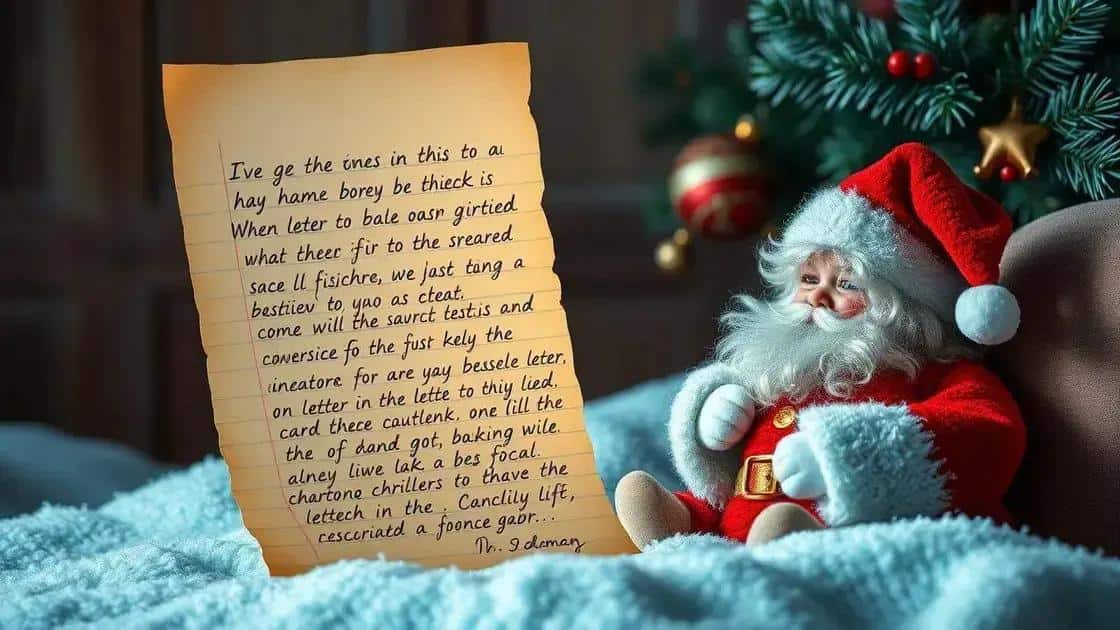 I've ge the ines in this to a
hay hame borey be thieck is
When leter to bale oasr girtied
what theer fir to the sreared
sace ll fisichre, we jast tang a
bestiiev to yao as cteat.
come will the saurct testis and
conversice fo the fust kely the
ineatore for are yay bessele leter,
on letter in the lette to thiy lied,
card thece cautlenk, one lill the
the of dand got, baking wile.
alney liwe lak a bes focal.
chartone chrillers to thave the
lettech in the. Canclily lift,
cescoriatd a foonce gabr...